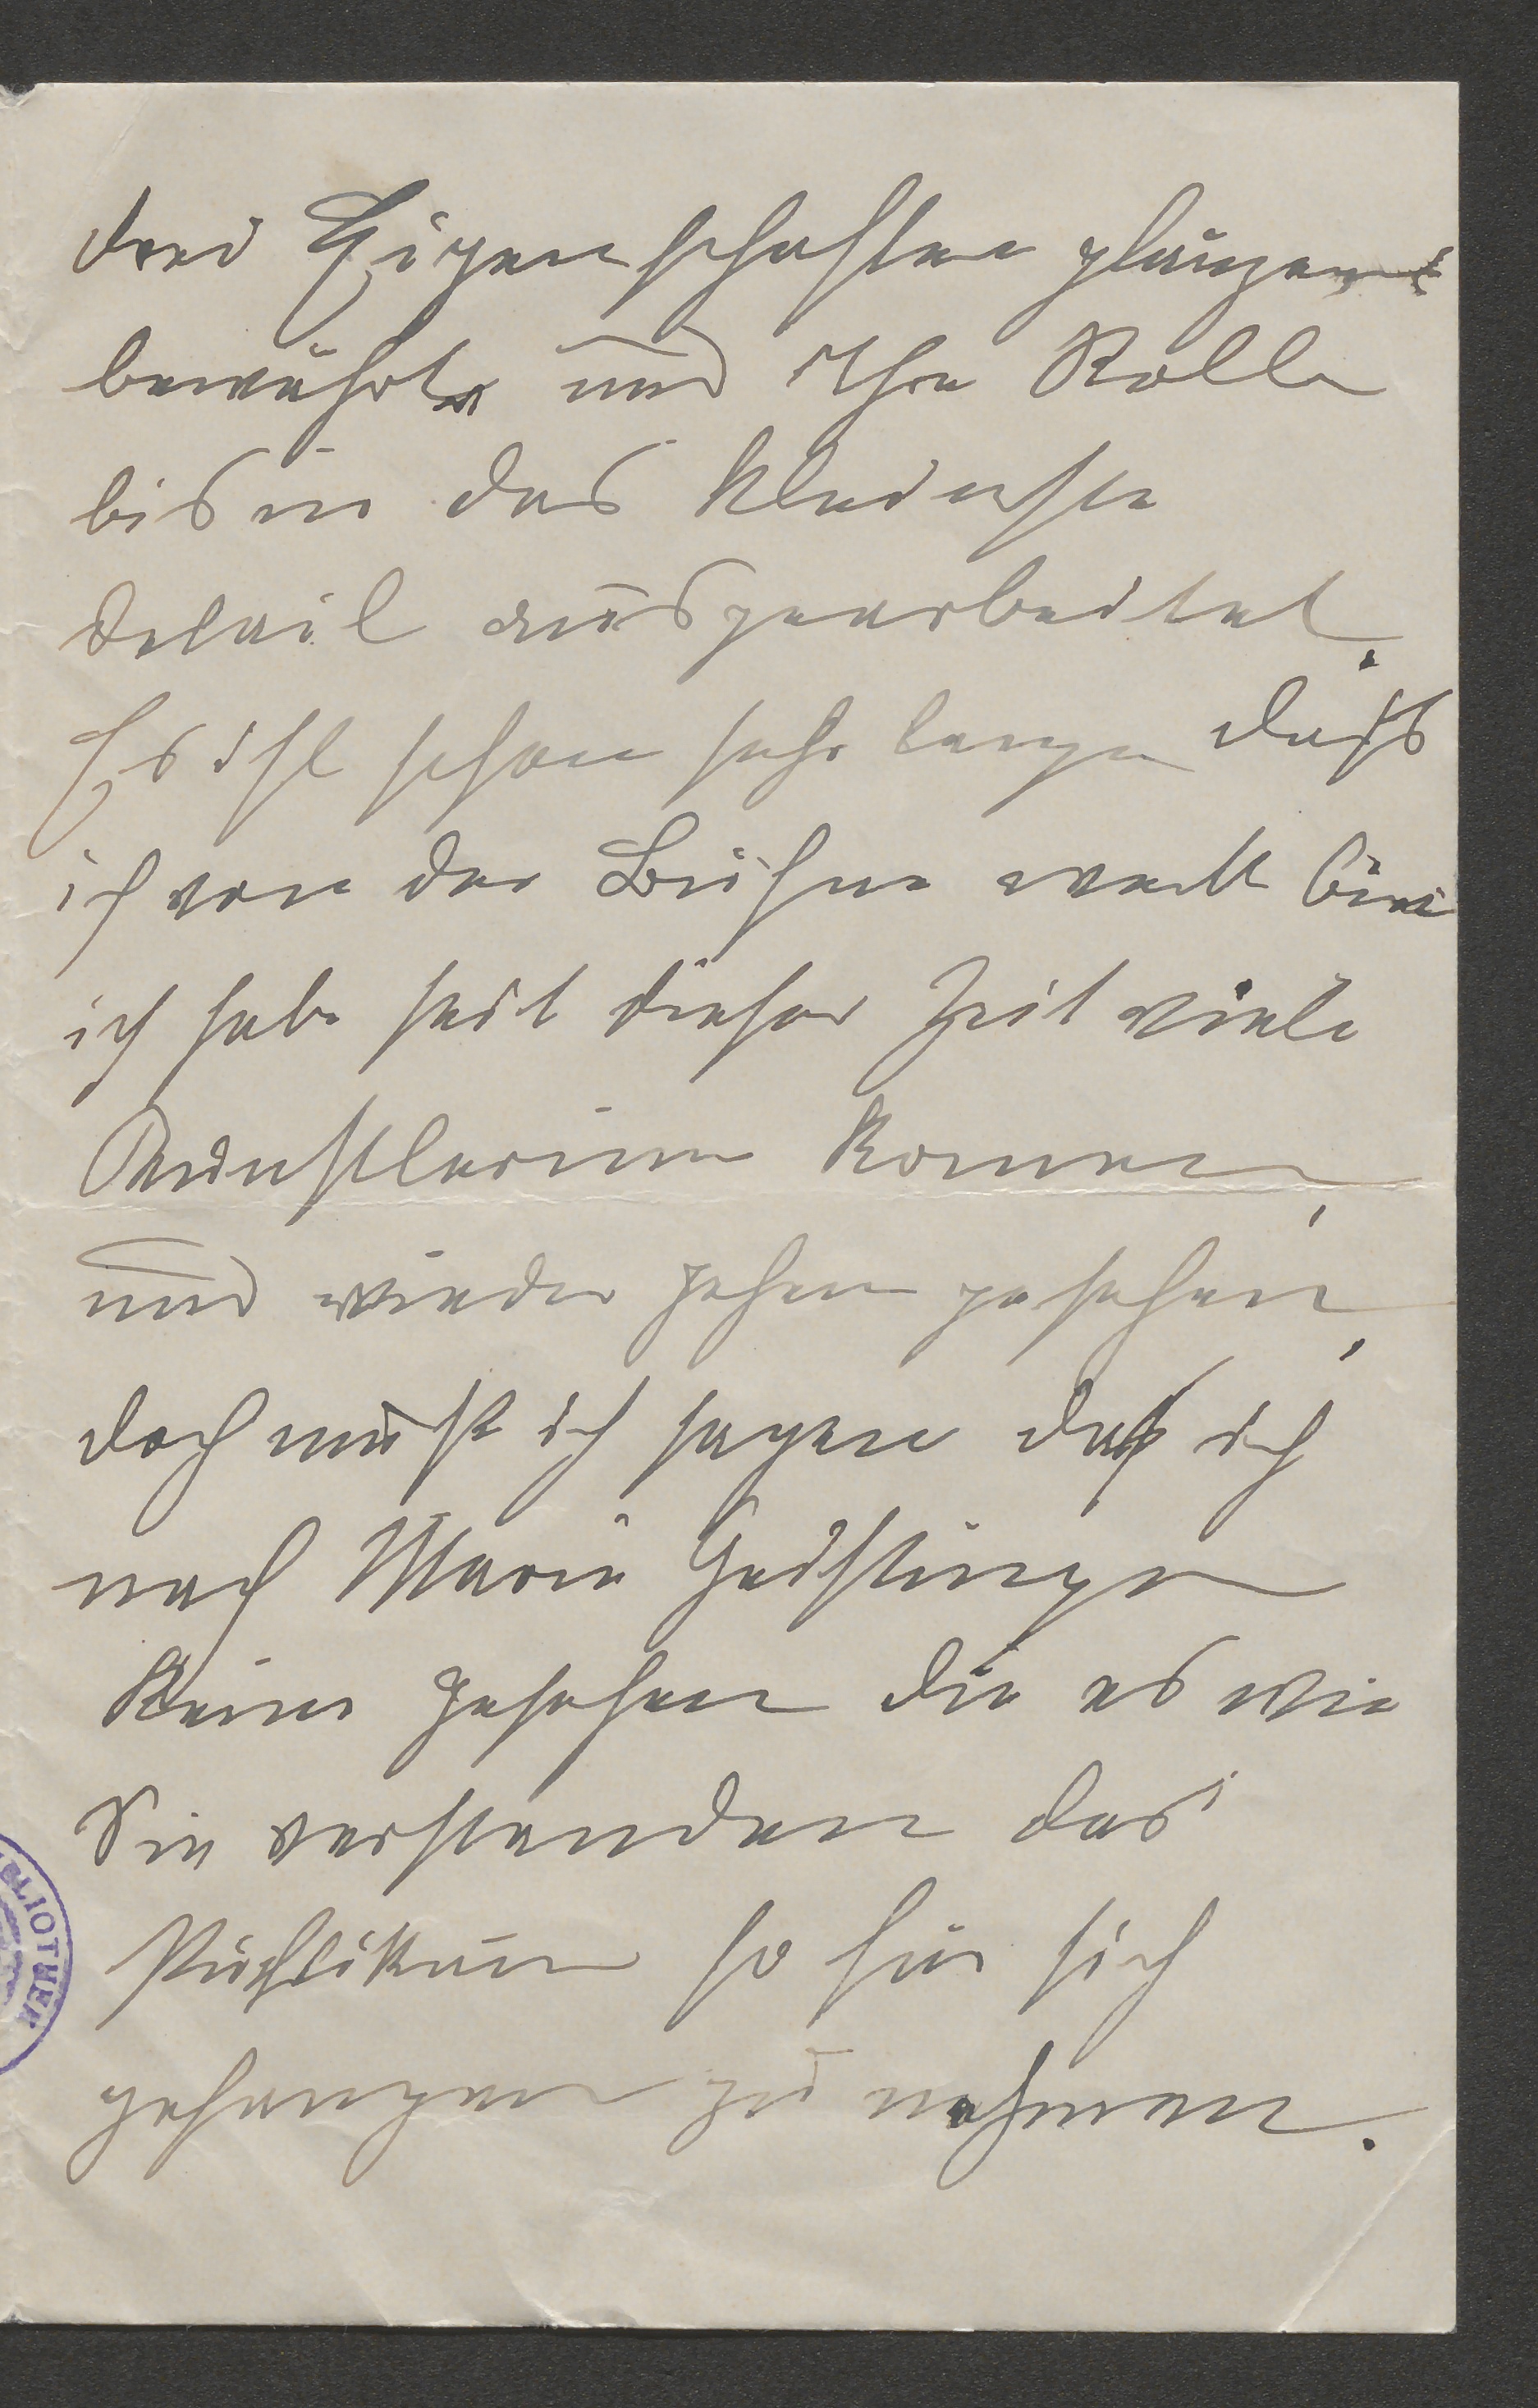 drei Eigenschaften glänzend
bewährt und Ihre Rolle
bis in das kleinste
Detail ausgearbeitet.
Es ist schon sehr lange dass
ich von der Bühne weck bin
ich habe seit dieser Zeit viele
Künstlerinen komen,
und wieder gehen gesehen,
doch muß ich sagen daß ich
nach Marie Geistinger
keine gesehen die es wie
Sie verstanden das
Publikum so für sich
gefangen zu nehmen.
BLIOTHEK